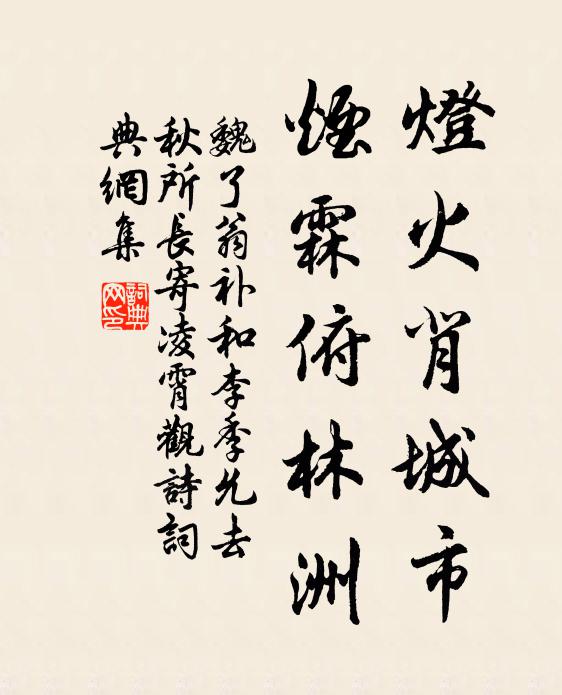 燈火肖城市
煙霖俯林洲
魏了翁补和李季允去
秋所長寄凌霄觀詩詞
典網集
詞典网印